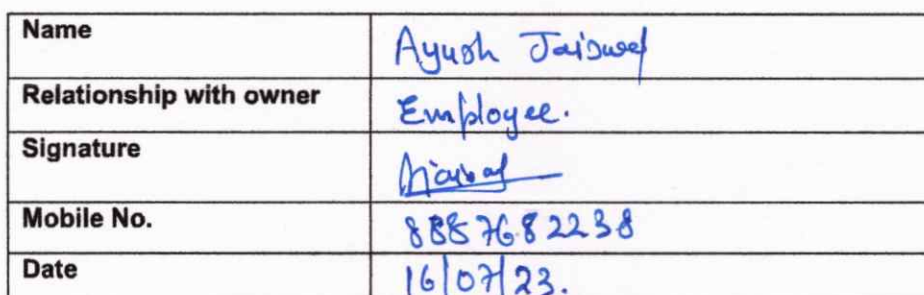 Name Ayush Jaiswal
Relationship with owner Employee.
Signature
Mobile No. 8887682238
Date 16/07/23.